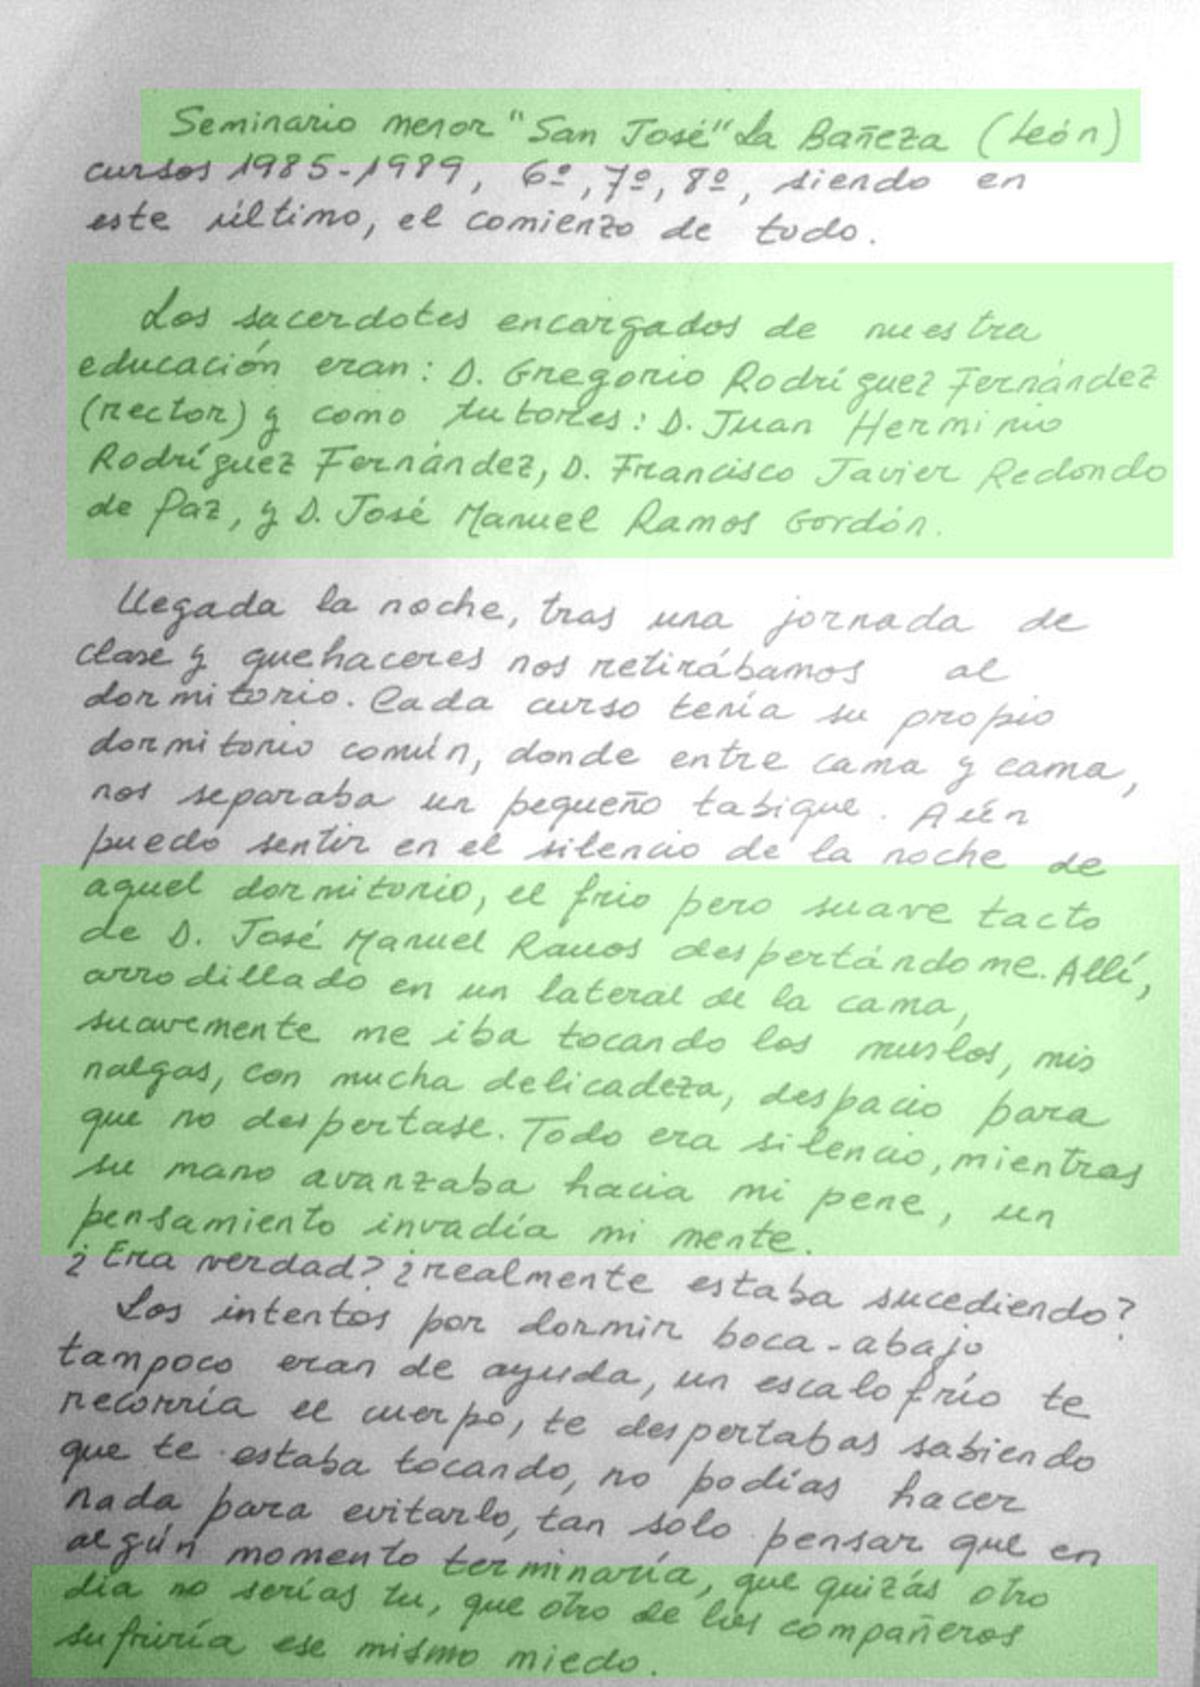 Seminario menor "San José" La Bañeza (León)
cursos 1985-1989, 6º, 7º, 8º, siendo en
este último, el comienzo de todo.
Los sacerdotes encargados de nuestra
educación eran: D. Gregorio Rodríguez Fernández
(rector) y como tutores: D. Juan Herminio
Rodríguez Fernández, D. Francisco Javier Redondo
de Paz, y D. José Manuel Ramos Gordón.
Llegada la noche, tras una jornada de
clase y quehaceres nos retirábamos al
dormitorio. Cada curso tenía su propio
dormitorio común, donde entre cama y cama,
nos separaba un pequeño tabique. Aún
puedo sentir en el silencio de la noche de
aquel dormitorio, el frio pero suave tacto
de D. José Manuel Ramos despertándome. Allí,
arrodillado en un lateral de la cama,
suavemente me iba tocando los muslos, mis
nalgas, con mucha delicadeza, despacio para
que no despertase. Todo era silencio, mientras
su mano avanzaba hacia mi pene, un
pensamiento invadía mi mente.
¿Era verdad? ¿realmente estaba sucediendo?
Los intentos por dormir boca-abajo
tampoco eran de ayuda, un escalofrío te
recorría el cuerpo, te despertabas sabiendo
que te estaba tocando, no podías hacer
nada para evitarlo, tan solo pensar que en
algún momento terminaría, que quizás otro
día no serías tu, que otro de los compañeros
sufriría ese mismo miedo.